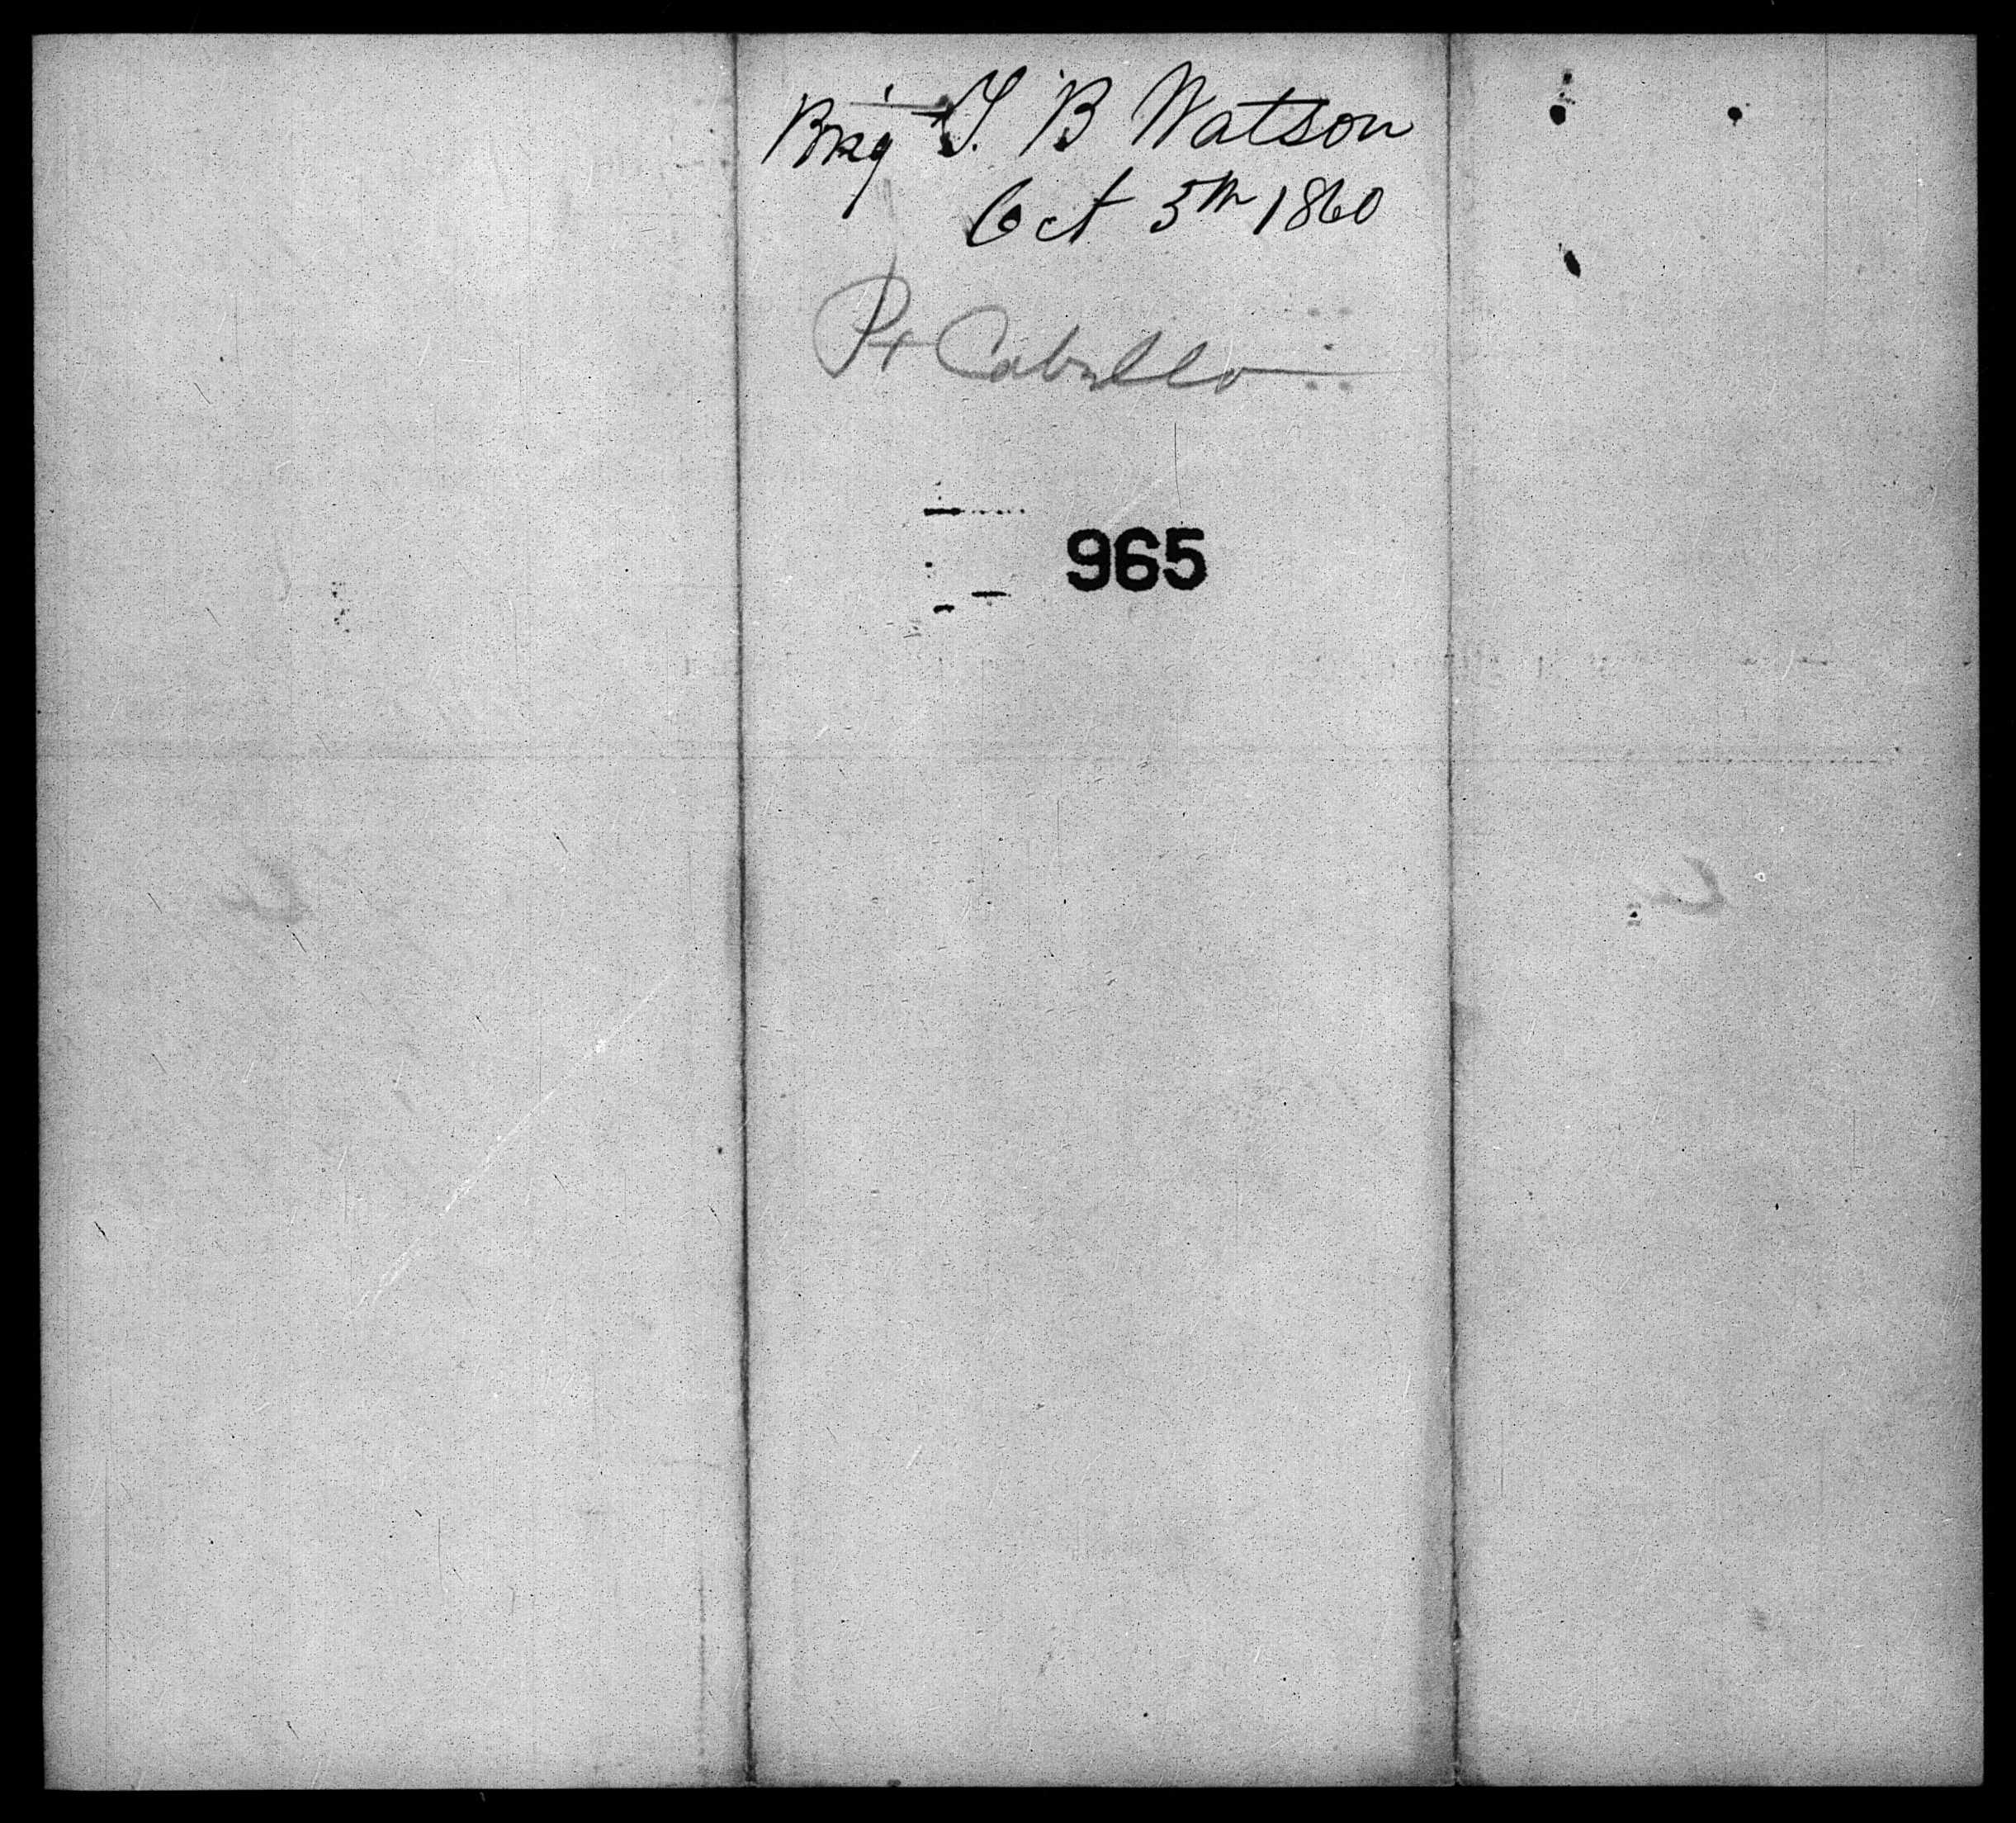 Brig T. B Watson
Oct 5th 1860
Pt Cabello
965